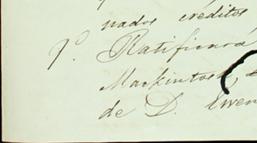 nados créditos
7º. Ratificará
Mackintosh,
de D. Ewen